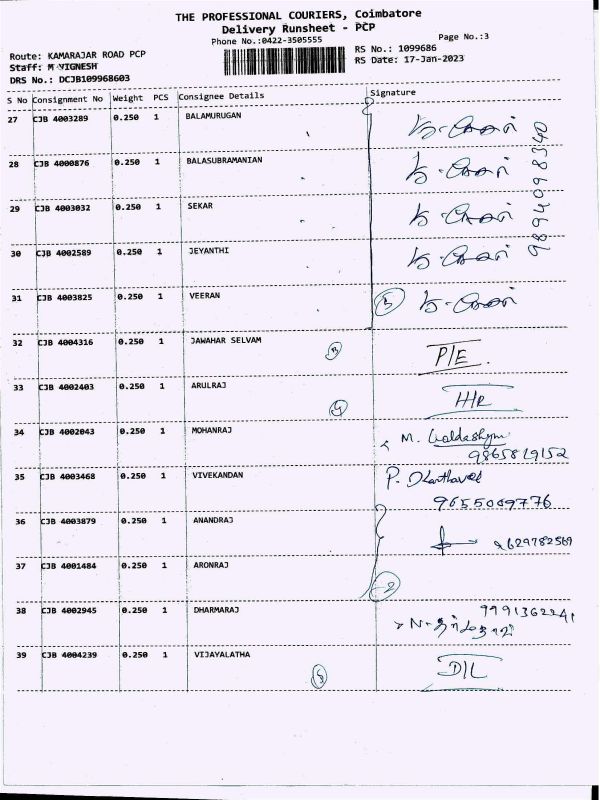 THE PROFESSIONAL COURIERS, Coimbatore
Delivery Runsheet - PCP
Phone No.:0422-3505555
Page No.:3
Route: KAMARAJAR ROAD PCP
RS No.: 1099686
Staff: M VIGNESH
RS Date: 17-Jan-2023
DRS No.: DCJB109968603
S No Consignment No Weight PCS Consignee Details Signature
27 CJB 4003289 0.250 1 BALAMURUGAN
9894098340
28 CJB 4000876 0.250 1 BALASUBRAMANIAN
29 CJB 4003032 0.250 1 SEKAR
30 CJB 4002589 0.250 1 JEYANTHI
31 CJB 4003825 0.250 1 VEERAN 5
32 CJB 4004316 0.250 1 JAWAHAR SELVAM P/E.
33 CJB 4002403 0.250 1 ARULRAJ
34 CJB 4002043 0.250 1 MOHANRAJ M.
9865819152
35 CJB 4003468 0.250 1 VIVEKANDAN P.
9655049776
36 CJB 4003879 0.250 1 ANANDRAJ 9629782569
37 CJB 4001484 0.250 1 ARONRAJ 2
38 CJB 4002945 0.250 1 DHARMARAJ 9991362241
39 CJB 4004239 0.250 1 VIJAYALATHA D/L